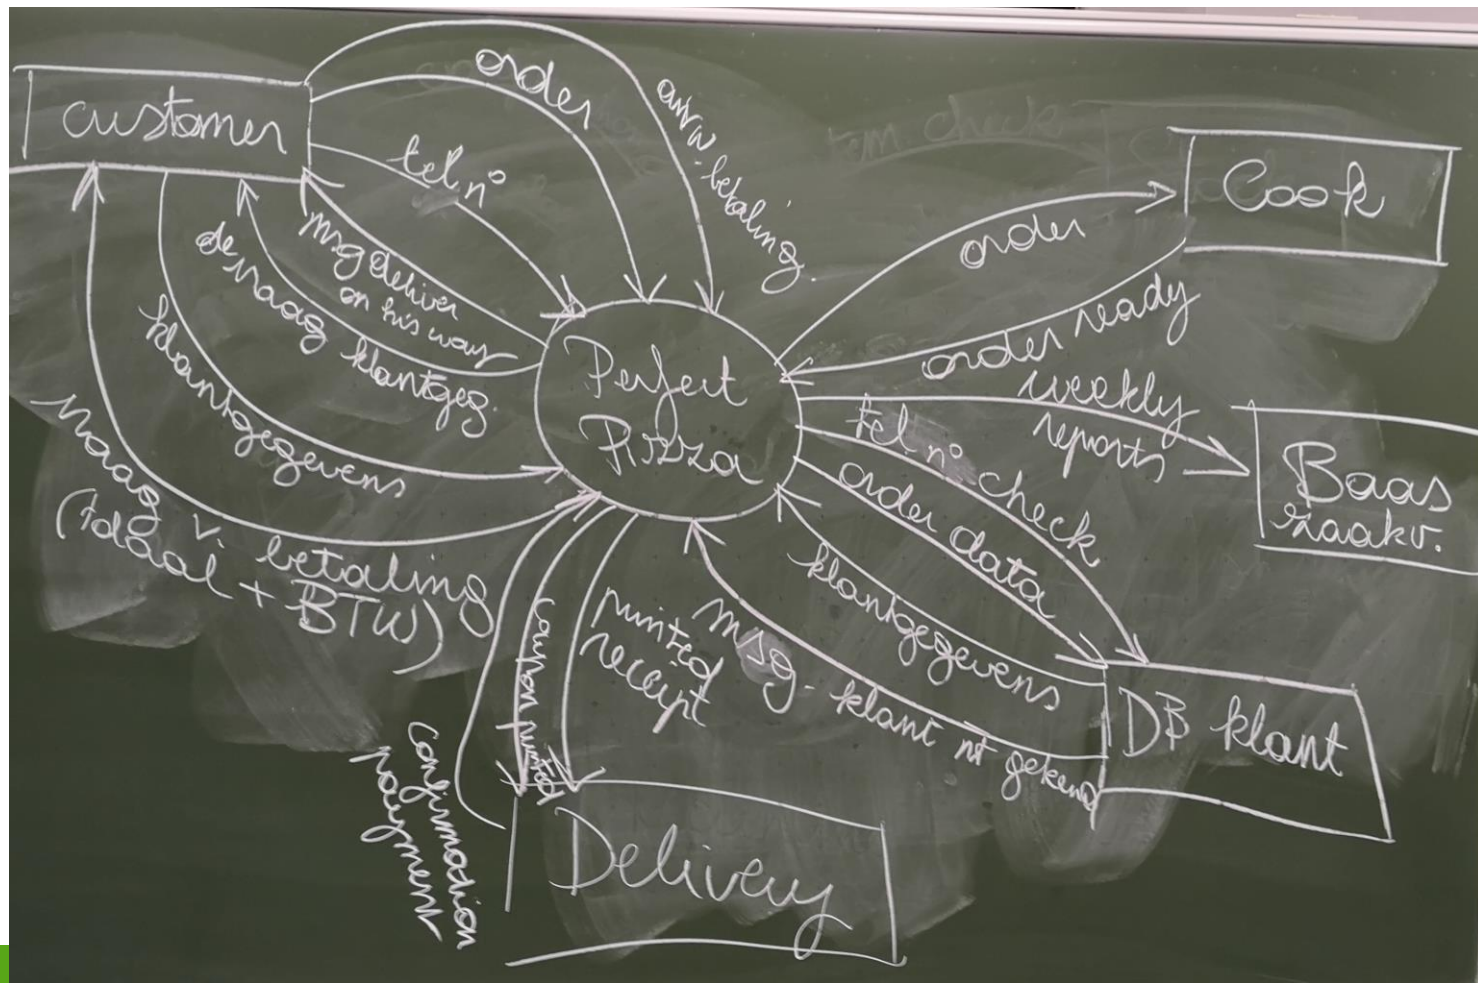 customer
order
tel n°
betaling.
msg deliver
on his way
klantgeg.
klantgegevens
vraag v. betaling
(totaal + BTW)
Perfect
Pizza
order
order ready
Cook
weekly
reports
Baas
zaakv.
tel n° check
order data
klantgegevens
msg. klant nt gekend
DB klant
printed
receipt
coupon printed
confirmation
payment
Delivery